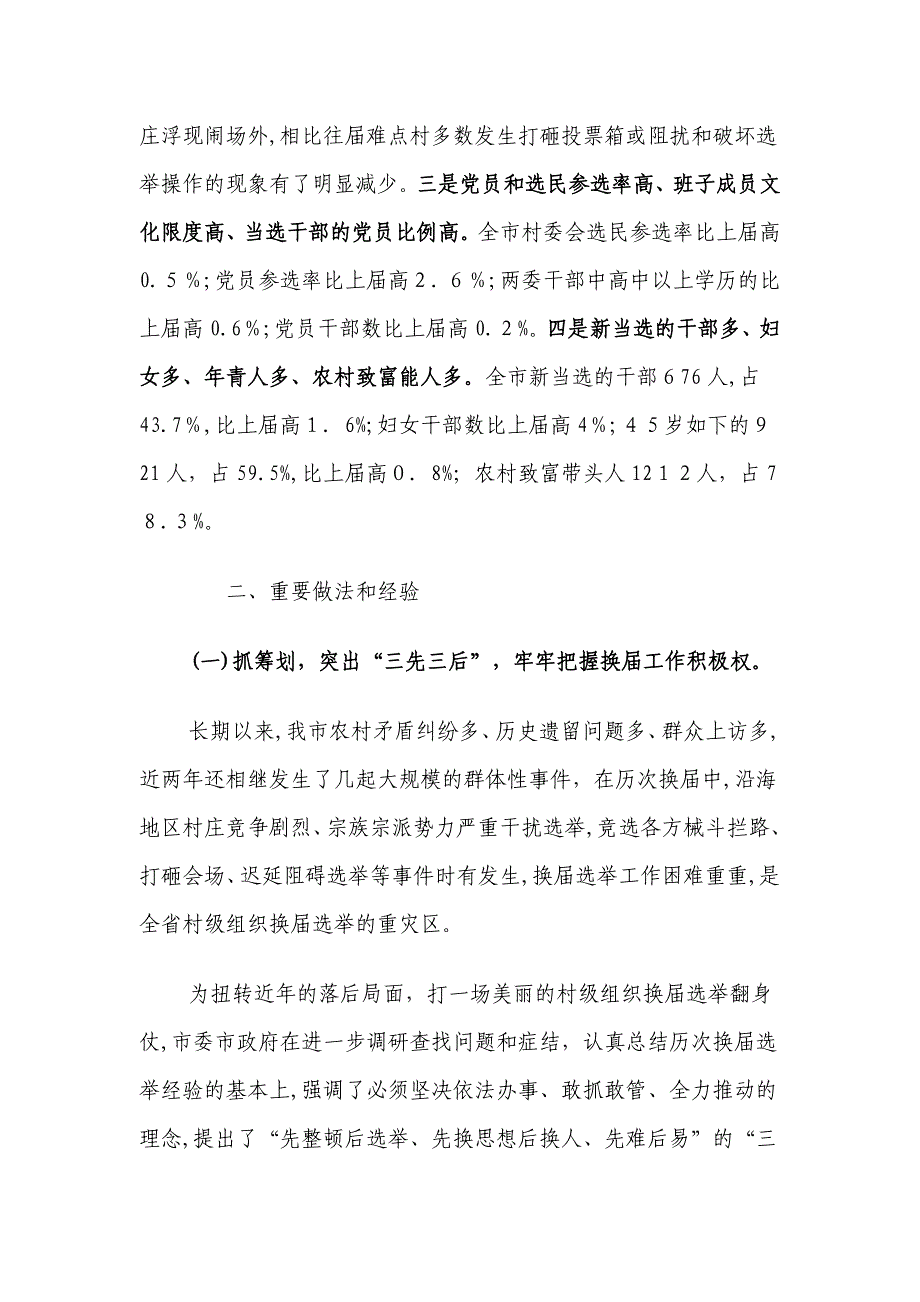 庄浮现闹场外,相比往届难点村多数发生打砸投票箱或阻扰和破坏选
举操作的现象有了明显减少。三是党员和选民参选率高、班子成员文
化限度高、当选干部的党员比例高。全市村委会选民参选率比上届高
0.５%;党员参选率比上届高２.６%;两委干部中高中以上学历的比
上届高0.6%;党员干部数比上届高0.２%。四是新当选的干部多、妇
女多、年青人多、农村致富能人多。全市新当选的干部６76人,占
43.7%,比上届高１.6%;妇女干部数比上届高4%;４５岁如下的９
21人，占59.5%,比上届高０.8%;农村致富带头人12１２人，占７
８.３%。
二、重要做法和经验
(一)抓筹划，突出“三先三后”，牢牢把握换届工作积极权。
长期以来,我市农村矛盾纠纷多、历史遗留问题多、群众上访多,
近两年还相继发生了几起大规模的群体性事件，在历次换届中,沿海
地区村庄竞争剧烈、宗族宗派势力严重干扰选举,竞选各方械斗拦路、
打砸会场、迟延阻碍选举等事件时有发生,换届选举工作困难重重,是
全省村级组织换届选举的重灾区。
为扭转近年的落后局面，打一场美丽的村级组织换届选举翻身
仗,市委市政府在进一步调研查找问题和症结，认真总结历次换届选
举经验的基本上,强调了必须坚决依法办事、敢抓敢管、全力推动的
理念,提出了“先整顿后选举、先换思想后换人、先难后易”的“三